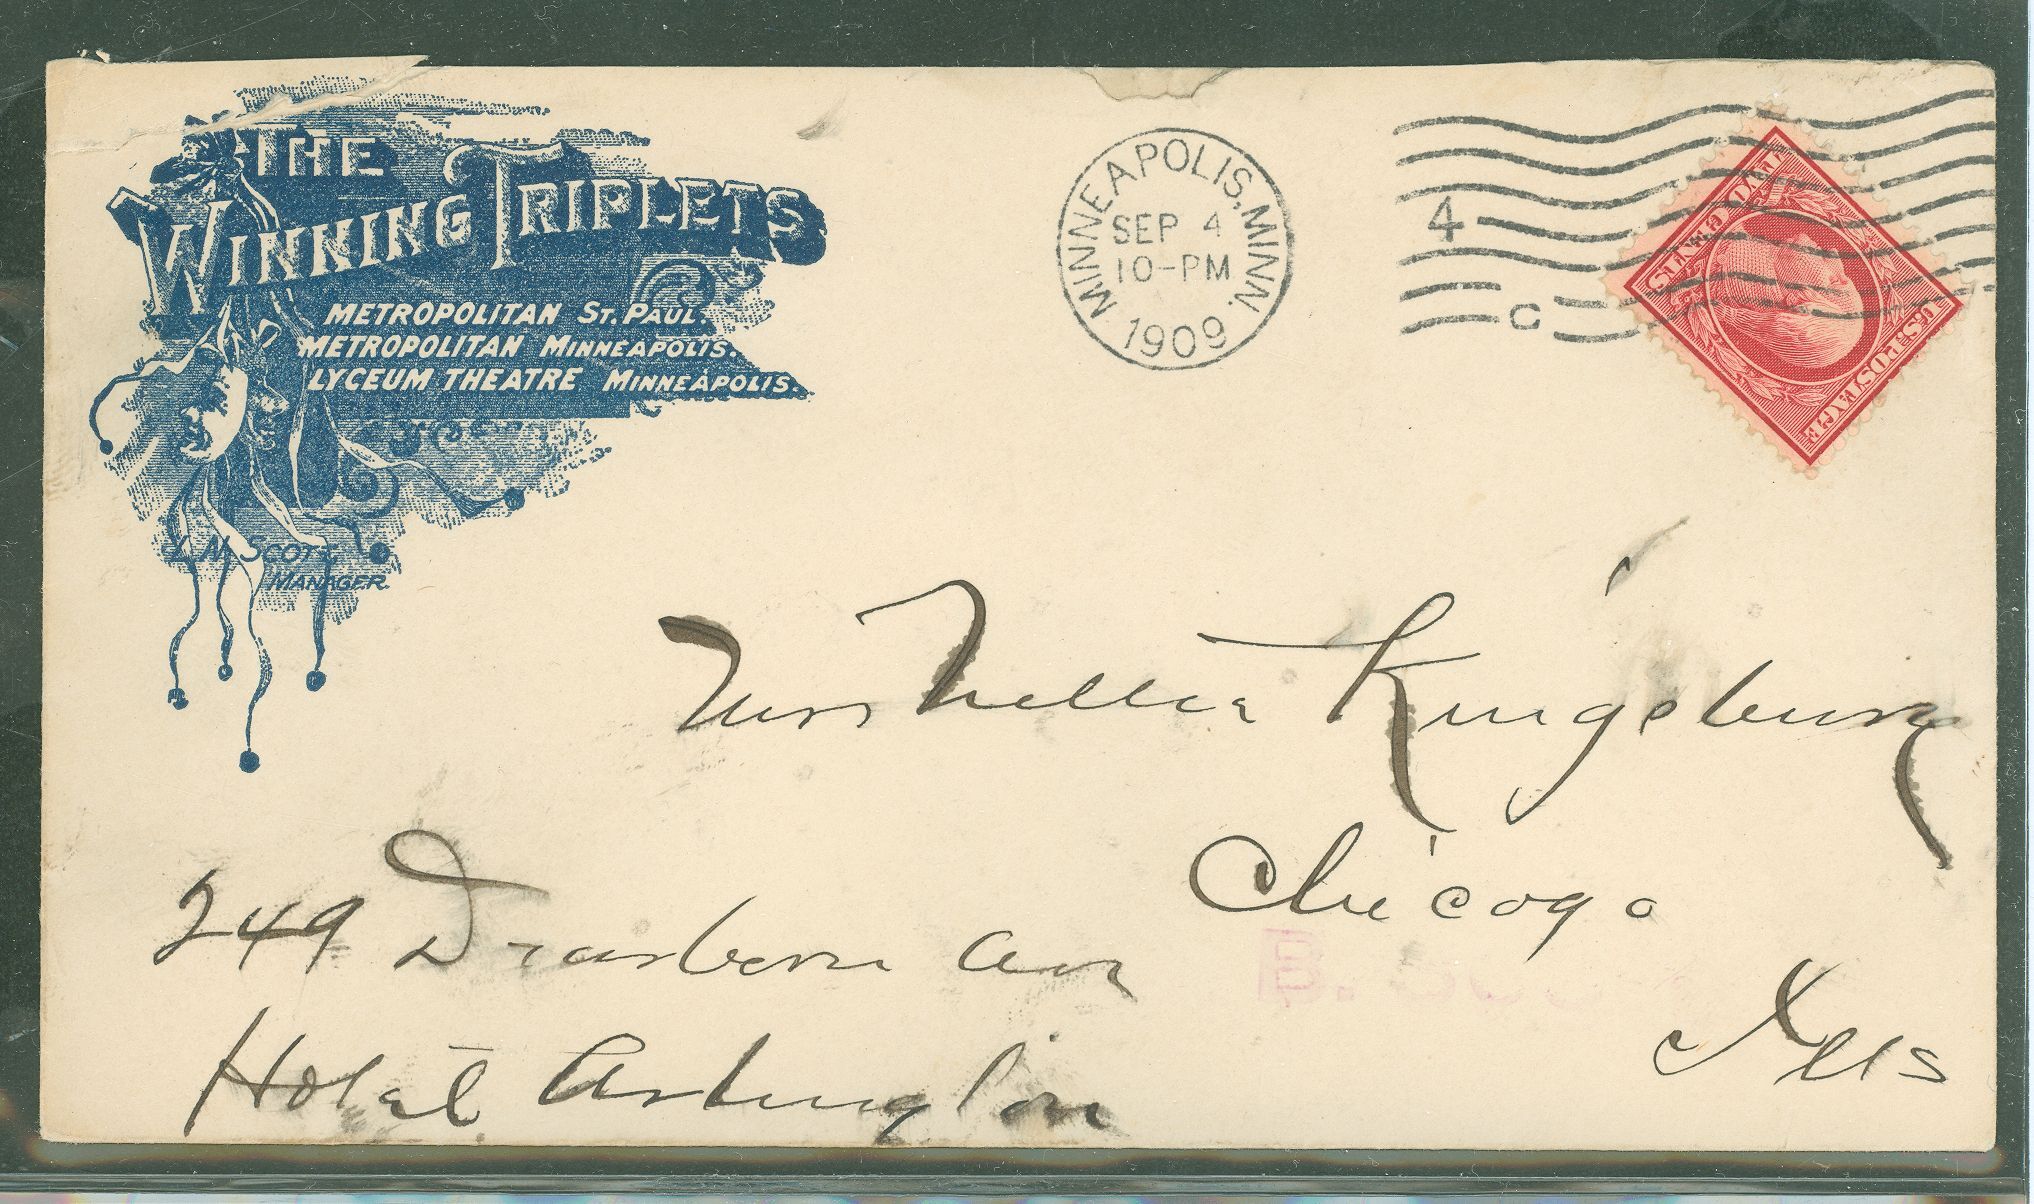 THE
WINNING TRIPLETS
METROPOLITAN ST. PAUL.
METROPOLITAN MINNEAPOLIS.
LYCEUM THEATRE MINNEAPOLIS.
L. N. SCOTT,
MANAGER.
MINNEAPOLIS, MINN.
SEP 4
10-PM
1909
4
C
U.S. POSTAGE
TWO CENTS 2
Miss Nellie Kingsbury
Chicago
249 Dearborn Ave
B.
Ills
Hotel